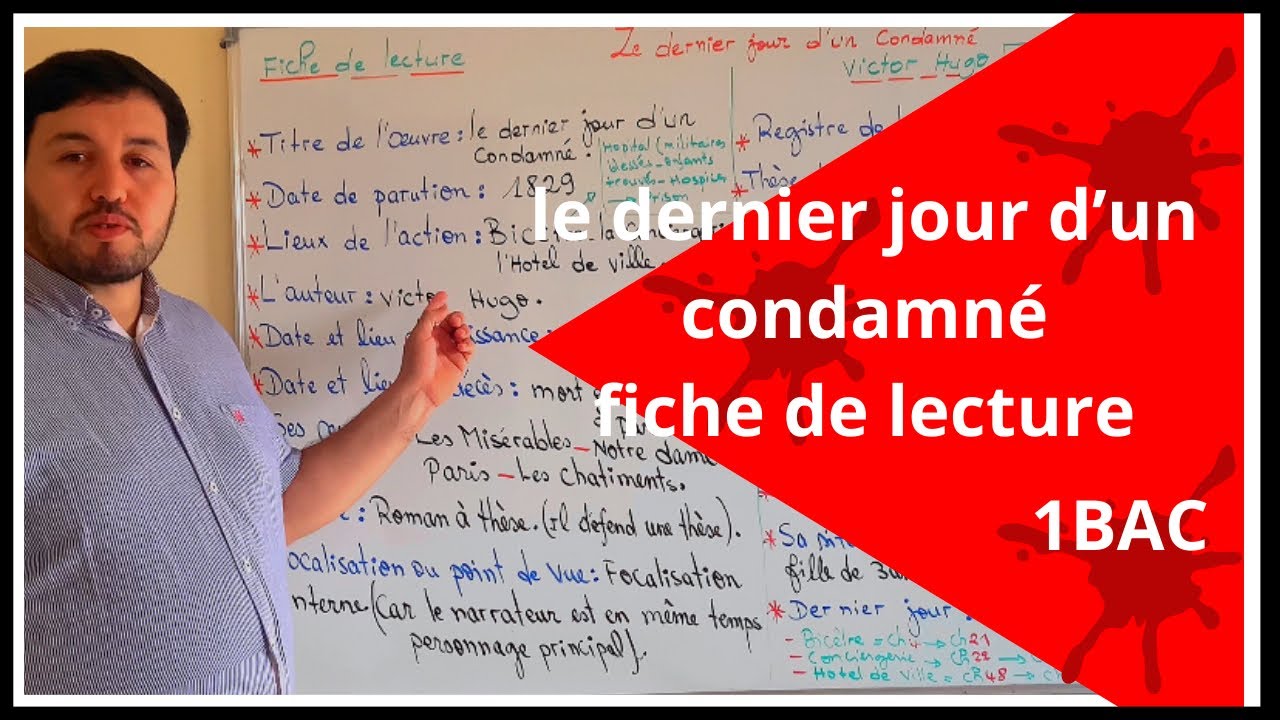 Fiche de lecture
Le dernier jour d'un Condamné
Victor Hugo
* Titre de l'Œuvre : le dernier jour d'un
Condamné.
Hopital (militaires
blessés - Enfants
trouvés - Hospice
→ Prison
* Date de parution : 1829
* Lieux de l'action :
l'Hotel de Ville
* L'auteur : Victor Hugo.
* Date et lieu
* Date et
: mort
Les Misérables - Notre dame
Paris - Les Chatiments.
: Roman à thèse. (il défend une thèse).
ocalisation ou point de vue : Focalisation
nterne (car le narrateur est en même temps
personnage principal).
* Registre de
* Thèse
* Sa
fille de 3 an
* Dernier jour :
- Bicêtre = ch1 → ch21
- Conciergerie → ch22 →
- Hotel de Ville = ch48 →
le dernier jour d’un
condamné
fiche de lecture
1BAC